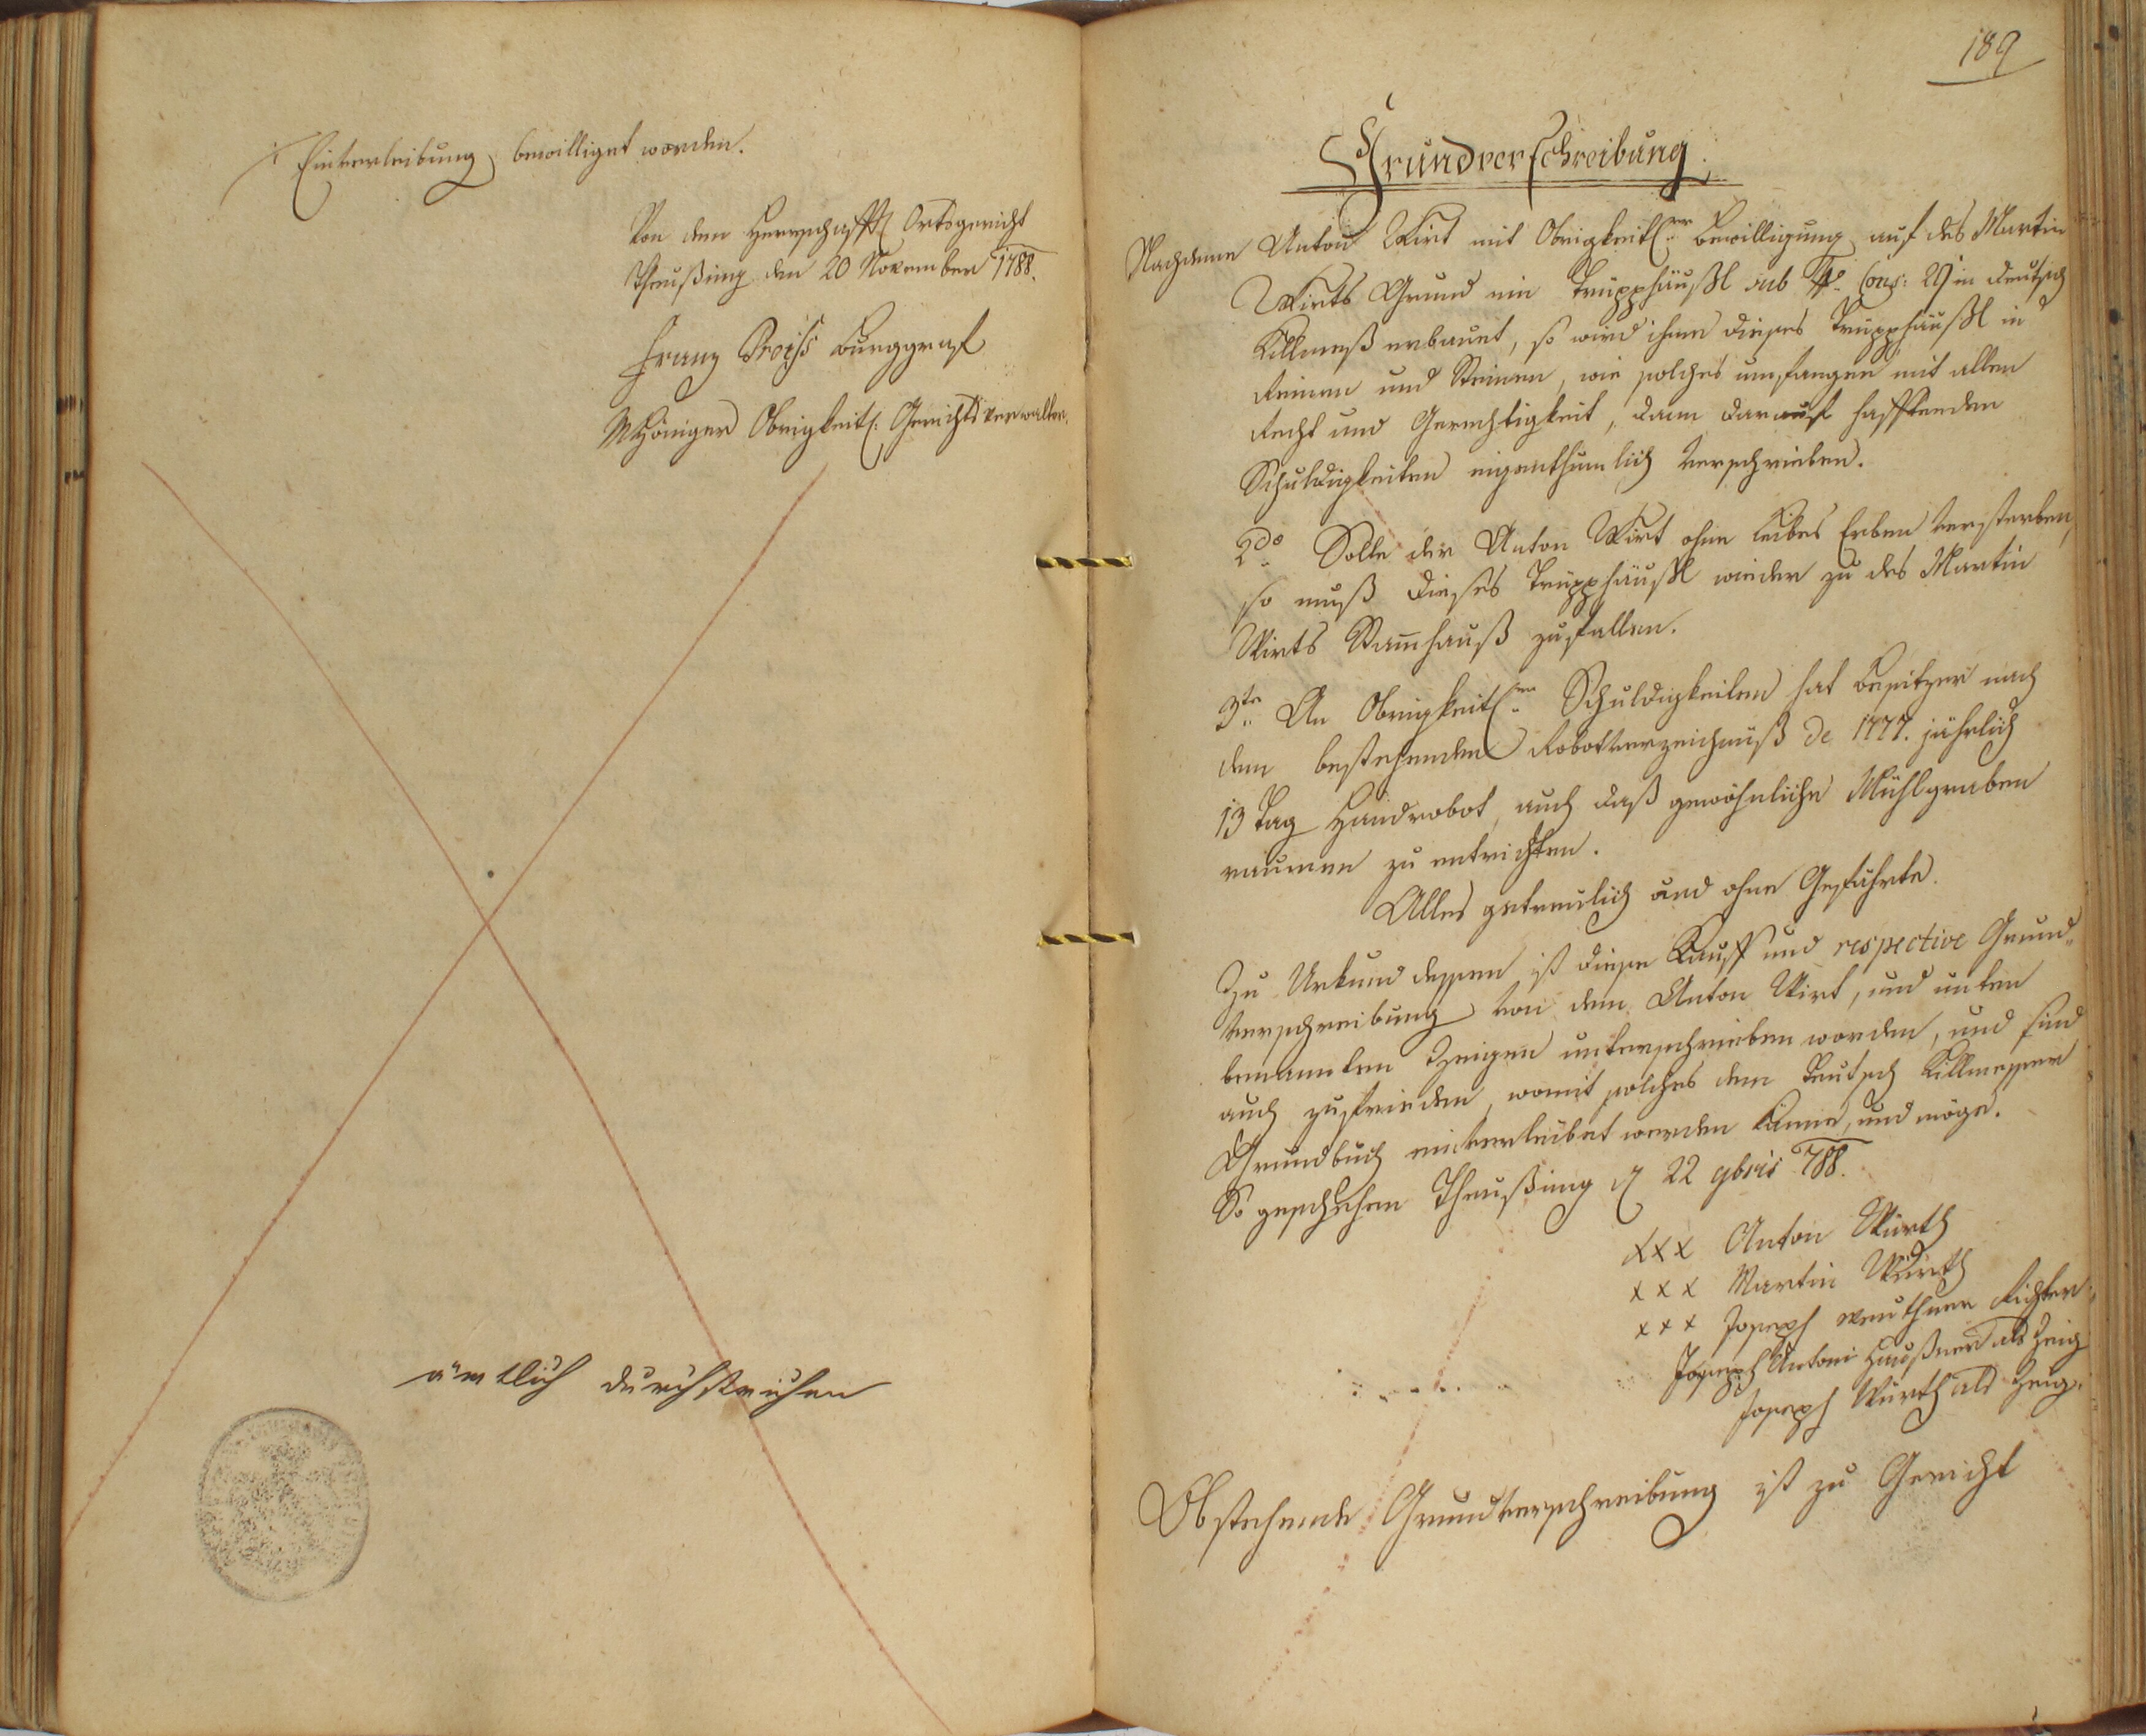 Einverleibung bewilliget worden.
Von dem Herrschaftl Ortsgericht
Theußing den 20 November 1788.
Franz Burggraf
Obrigkeitl: Gerichtsverwalter.
ämtlich durchstrichen
189
Grundverschreibung.
Nachdeme Anton Wirt mit Obrigkeitl.er Bewilligung auf des Martin
Wirts Grund ein Trüpphäußl sub No Cons: 29 in deutsch
Killmeß erbauet, so wird ihme dieses Trüpphäußl in
Reinen und Steinen, wie solches umfangen mit allen
Recht und Gerechtigkeit, dann darauf hafftenden
Schuldigkeiten eigenthumlich verschrieben.
2do Solle der Anton Wirt ohne leibes Erben versterben,
so muß dieses Trüpphäußl wieder zu des Martin
Wirts Stamhauß zufallen.
3tn An Obrigkeitl.en Schuldigkeiten hat Besitzer nach
dem bestehenden Robottverzeichnüß de 1777. jährlich
13 Tag Handrobot, auch daß gewöhnliche Mühlgraben
raumen zu entrichten.
Alles getreulich und ohne Gefährte.
Zu Urkund dessen ist diese Kauff und respective Grund„
verschreibung von dem Anton Wirt, und unten
benannten Zeigen unterschrieben worden, und sind
auch zufrieden, womit solches dem Teutsch Killmesser
Grundbuch einverleibet werden könne, und möge.
So geschehen Theußing d 22 9bris 788.
xxx Anton Würth
xxx Martin Würth
xxx Joseph Richter
Joseph Antoni Haußner als Zeig
Joseph Würth als Zeig.
Obstehende Grundverschreibung ist zu Gericht